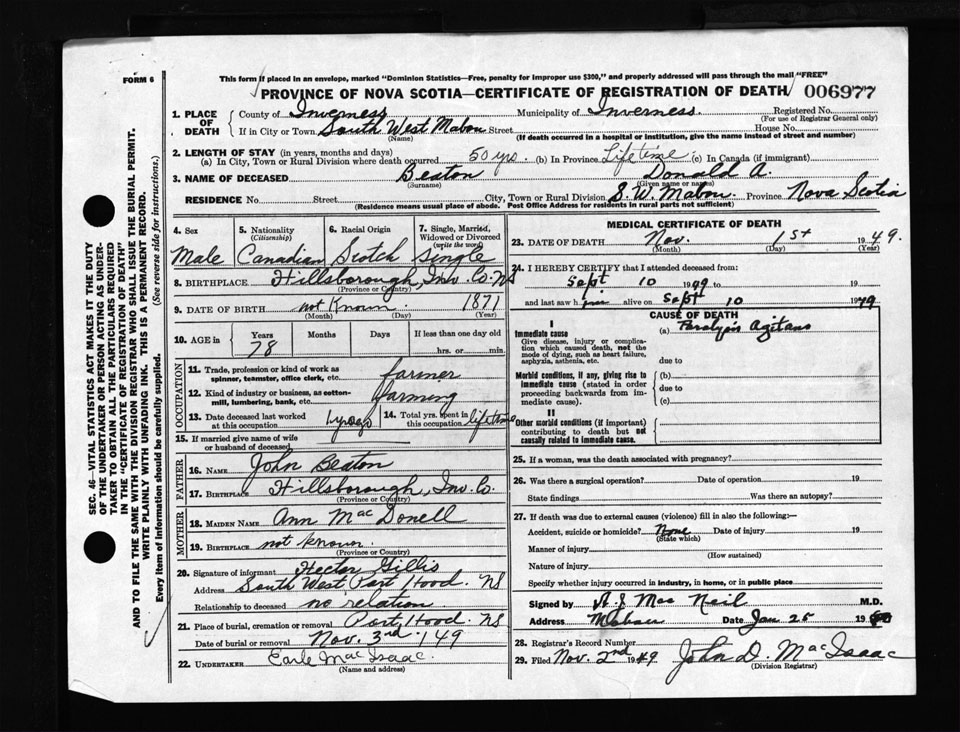 FORM 6
This form if placed in an envelope, marked "Dominion Statistics—Free, penalty for improper use $300," and properly addressed will pass through the mail "FREE"
PROVINCE OF NOVA SCOTIA—CERTIFICATE OF REGISTRATION OF DEATH 006977
1. PLACE OF DEATH County of Inverness Municipality of Inverness Registered No.
(For use of Registrar General only)
If in City or Town South West Mabou Street House No.
(Name) (If death occurred in a hospital or institution, give the name instead of street and number)
2. LENGTH OF STAY (in years, months and days)
(a) In City, Town or Rural Division where death occurred 50 yrs. (b) In Province Lifetime (c) In Canada (if immigrant)
3. NAME OF DECEASED Beaton Donald A.
(Surname) (Given name or names)
RESIDENCE No. Street City, Town or Rural Division S. W. Mabou. Province Nova Scotia
(Residence means usual place of abode. Post Office Address for residents in rural parts not sufficient)
4. Sex 5. Nationality (Citizenship) 6. Racial Origin 7. Single, Married, Widowed or Divorced (write the word)
Male Canadian Scotch Single
8. BIRTHPLACE Hillsborough, Inv. Co. NS
(Province or Country)
9. DATE OF BIRTH not Known 1871
(Month) (Day) (Year)
10. AGE in Years Months Days If less than one day old
78 hrs. or min.
OCCUPATION
11. Trade, profession or kind of work as spinner, teamster, office clerk, etc. farmer
12. Kind of industry or business, as cotton-mill, lumbering, bank, etc. farming
13. Date deceased last worked at this occupation 14. Total yrs. spent in this occupation lifetime
15. If married give name of wife or husband of deceased
FATHER
16. NAME John Beaton
17. BIRTHPLACE Hillsborough, Inv. Co.
(Province or Country)
MOTHER
18. MAIDEN NAME Ann Mac Donell
19. BIRTHPLACE not known.
(Province or Country)
20. Signature of informant Hector Gillis
Address South West Port Hood. NS
Relationship to deceased no relation
21. Place of burial, cremation or removal Port Hood. NS
Date of burial or removal Nov. 3rd 149
22. UNDERTAKER Earle Mac Isaac.
(Name and address)
MEDICAL CERTIFICATE OF DEATH
23. DATE OF DEATH Nov. 1st 1949.
(Month) (Day) (Year)
24. I HEREBY CERTIFY that I attended deceased from:
Sept 10 1949
and last saw h alive on Sept 10 1949
CAUSE OF DEATH
I
Immediate cause (a) Paralysis Agitans
Give disease, injury or complication which caused death, not the mode of dying, such as heart failure, asphyxia, asthenia, etc.
due to
Morbid conditions, if any, giving rise to immediate cause (stated in order proceeding backwards from immediate cause). (b)
due to
(c)
II
Other morbid conditions (if important) contributing to death but not causally related to immediate cause.
25. If a woman, was the death associated with pregnancy?
26. Was there a surgical operation? Date of operation 19
State findings Was there an autopsy?
27. If death was due to external causes (violence) fill in also the following:—
Accident, suicide or homicide? None Date of injury 19
(State which)
Manner of injury
(How sustained)
Nature of injury
Specify whether injury occurred in industry, in home, or in public place
Signed by A J Mac Neil M.D.
Address Mabou Date Jan 25 19
28. Registrar's Record Number
29. Filed Nov. 2nd 1949 John D. MacIsaac
(Division Registrar)
SEC. 46—VITAL STATISTICS ACT MAKES IT THE DUTY
OF THE UNDERTAKER OR PERSON ACTING AS UNDERTAKER TO OBTAIN ALL THE PARTICULARS REQUIRED
IN THE "CERTIFICATE OF REGISTRATION OF DEATH"
AND TO FILE THE SAME WITH THE DIVISION REGISTRAR WHO SHALL ISSUE THE BURIAL PERMIT.
WRITE PLAINLY WITH UNFADING INK. THIS IS A PERMANENT RECORD.
Every item of Information should be carefully supplied. (See reverse side for instructions.)